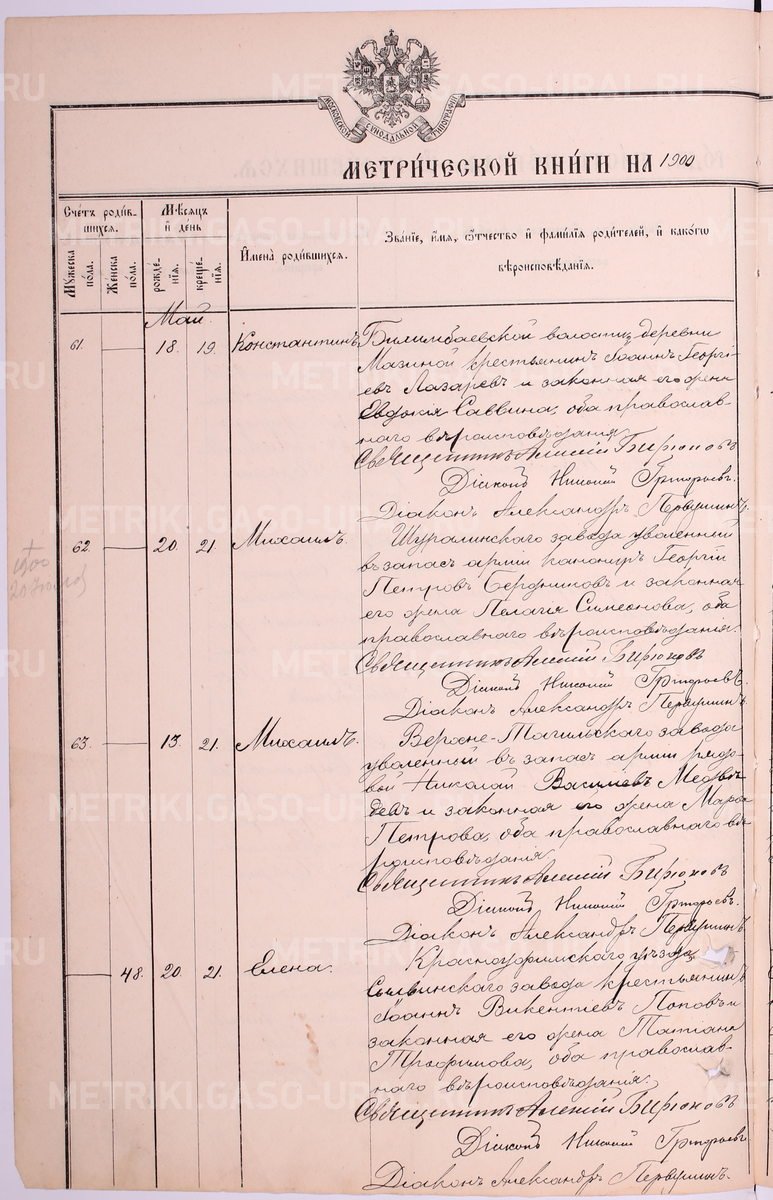 МОСКОВСКОЙ СѴНОДАЛЬНОЙ ТИПОГРАФІИ
МЕТРИ́ЧЕСКОЙ КНИ́ГИ НА 1900
Сче́тъ роди́в-
шихся.
Мѣ́сяцъ
и҆ де́нь
И҆мена̀ роди́вшихся.
Зва́нїе, и҆́мя, ѻ҆́тчество и҆ фами́лїя роди́телей, и҆ како́гѡ
вѣроисповѣ́данїя.
Мꙋ́жеска
по́ла.
Же́нска
по́ла.
рожде́-
нїя.
креще́-
нїя.
Май.
61. 18. 19. Константинъ
Билимбаевской волости, деревни
Мазиной крестьянинъ Іоаннъ Георгі-
евъ Лазаревъ и законная его жена
Евдокія Саввина, оба православ-
наго вѣроисповѣданія.
Священникъ Алексій Бирюковъ
Діаконъ Николай Григорьевъ.
Діаконъ Александръ Первушинъ.
62. 20. 21. Михаилъ.
Шуралинскаго завода уволенный
въ запасъ арміи канониръ Георгій
Петровъ Бердниковъ и законная
его жена Пелагія Симеонова, оба
православнаго вѣроисповѣданія.
Священникъ Алексій Бирюковъ
Діаконъ Николай Григорьевъ.
Діаконъ Александръ Первушинъ.
†
1900
20
63. 13. 21. Михаилъ.
Верхне-Тагильскаго завода
уволенный въ запасъ арміи рядо-
вой Николай Васильевъ Медвѣ-
девъ и законная его жена Марѳа
Петрова, оба православнаго вѣ-
роисповѣданія.
Священникъ Алексій Бирюковъ
Діаконъ Николай Григорьевъ.
Діаконъ Александръ Первушинъ.
48. 20. 21. Елена.
Красноуфимскаго уѣзда,
Сылвинскаго завода крестьянинъ
Іоаннъ Викентіевъ Поповъ и
законная его жена Татіана
Трофимова, оба православ-
наго вѣроисповѣданія.
Священникъ Алексій Бирюковъ
Діаконъ Николай Григорьевъ
Діаконъ Александръ Первушинъ.
METRIKI.GASO-URAL.RU